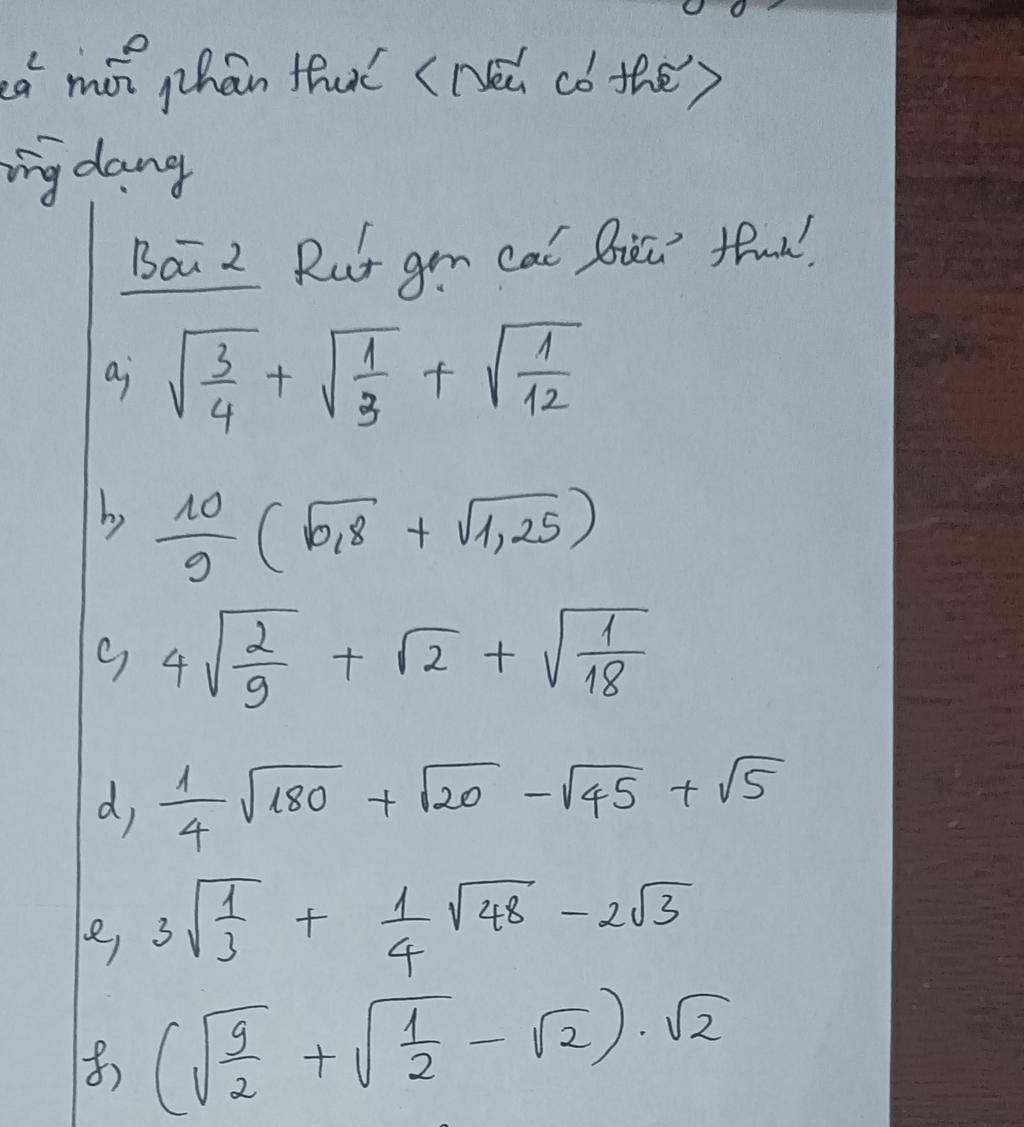 mỗi phân thức <Nếu có thể>
dạng
Bài 2 Rút gọn các biểu thức.
a, √(3/4) + √(1/3) + √(1/12)
b, 10/9 (√0,8 + √1,25)
c, 4√(2/9) + √2 + √(1/18)
d, 1/4 √180 + √20 - √45 + √5
e, 3√(1/3) + 1/4 √48 - 2√3
f, (√(9/2) + √(1/2) - √2) . √2